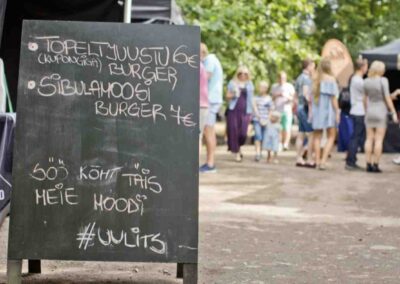 TOPELTJUUSTU 6€
(KUPONGIGA) BURGER
SIBULAMOOSI
BURGER 7€
SÖÖ KÕHT TÄIS
MEIE MOODI
#UULITS